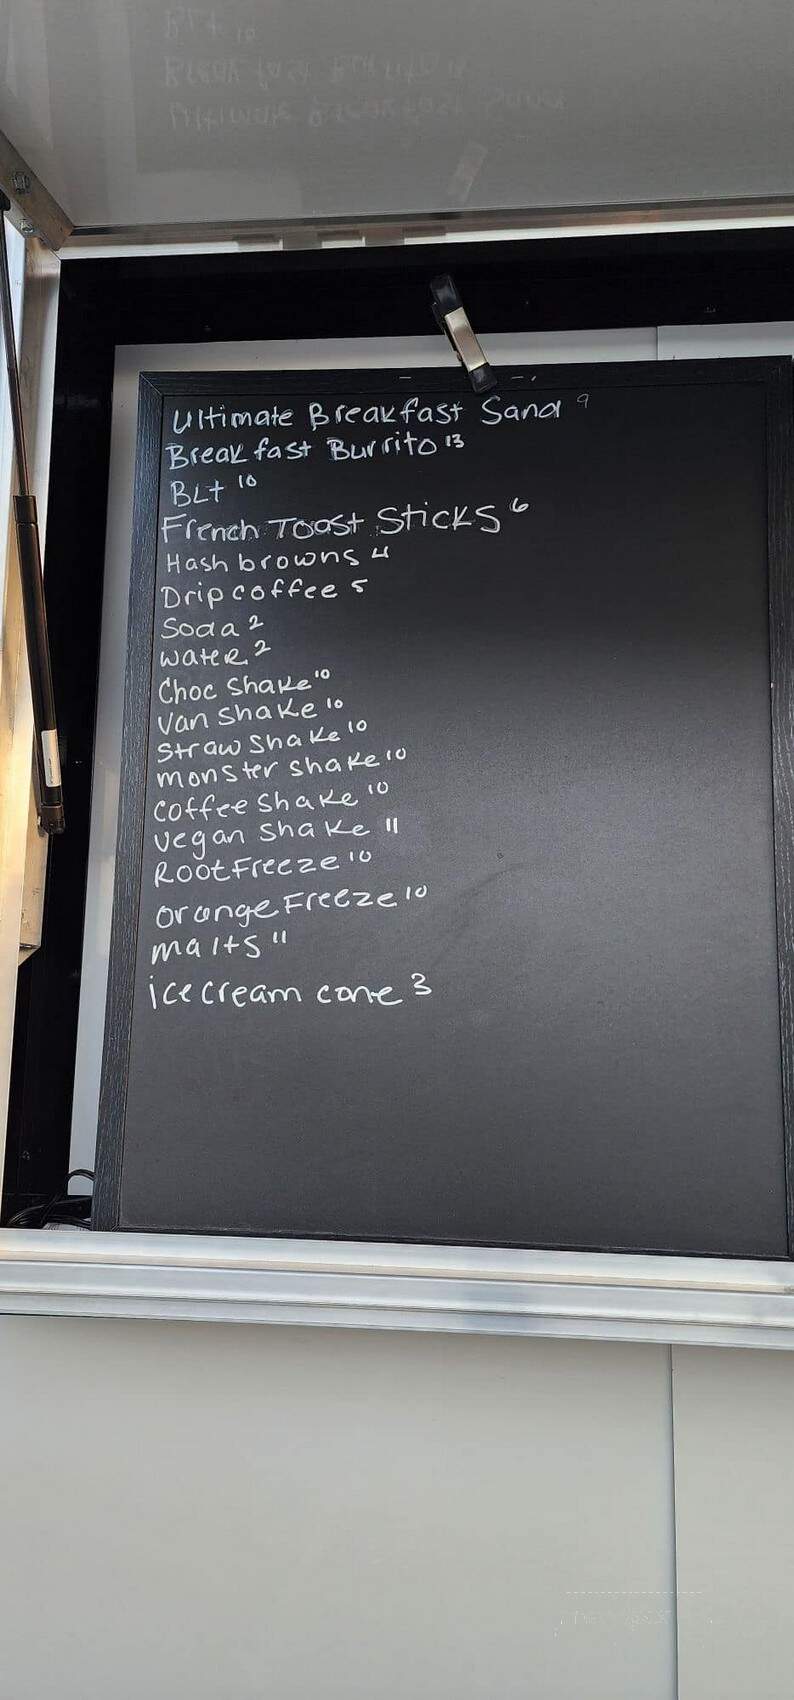 Ultimate Breakfast Sand 9
Breakfast Burrito 13
BLt 10
French Toast Sticks 6
Hash browns 4
Drip coffee 5
Soda 2
water 2
Choc Shake 10
Van Shake 10
Straw Shake 10
monster shake 10
coffee shake 10
vegan shake 11
Root Freeze 10
orange Freeze 10
malts 11
ice cream cone 3